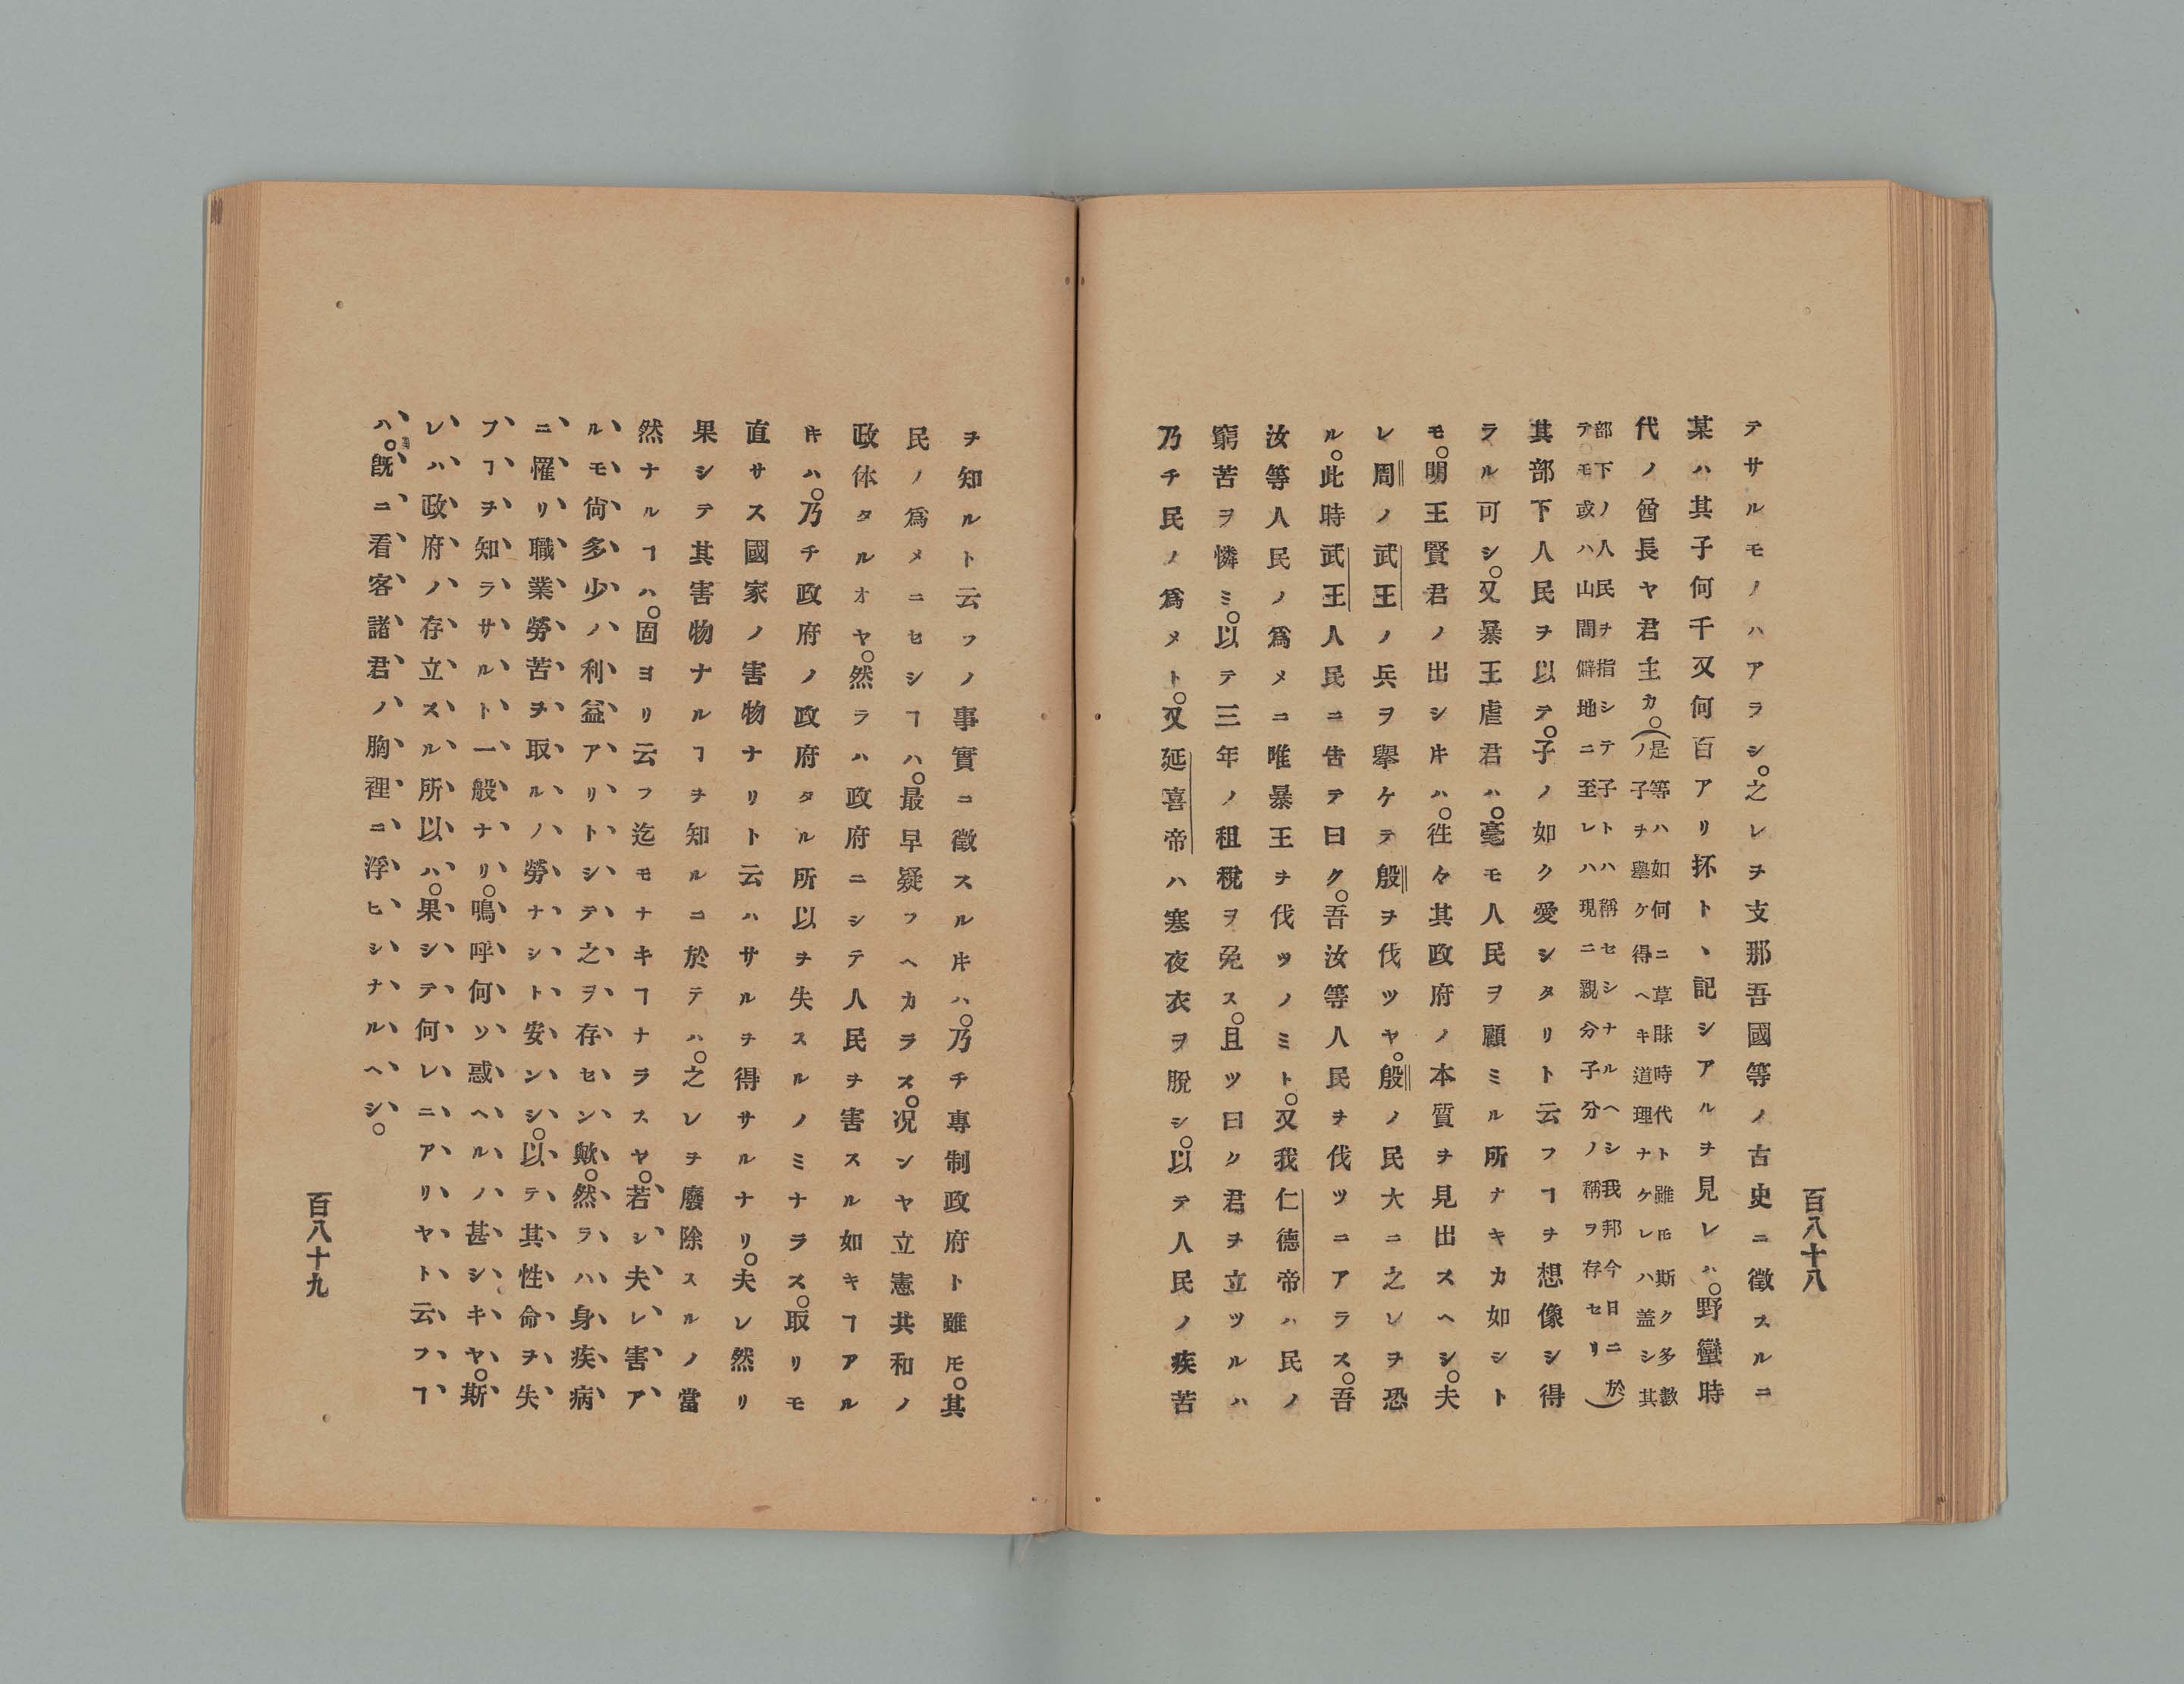 百八十八
テサルモノハアラシ。之レヲ支那吾國等ノ古史ニ徵スルニ
某ハ其子何千又何百アリ抔ト、記シアルヲ見レハ。野蠻時
代ノ酋長ヤ君主カ。(是等ハ如何ニ草昧時代ト雖𪜈斯ク多數
ノ子ヲ擧ケ得ヘキ道理ナケレハ盖シ其
部下ノ人民ヲ指シテ子トハ稱セシナルヘシ我邦今日ニ於
テモ或ハ山間僻地ニ至レハ現ニ親分子分ノ稱ヲ存セリ)
其部下人民ヲ以テ。子ノ如ク愛シタリト云フヿヲ想像シ得
ラル可シ。又暴王虐君ハ。毫モ人民ヲ顧ミル所ナキカ如シト
モ。明王賢君ノ出シ𪜈ハ。徃々其政府ノ本質ヲ見出スヘシ。夫
レ周ノ武王ノ兵ヲ擧ケテ殷ヲ伐ツヤ。殷ノ民大ニ之レヲ恐
ル。此時武王人民ニ告テ曰ク。吾汝等人民ヲ伐ツニアラス。吾
汝等人民ノ爲メニ唯暴王ヲ伐ツノミト。又我仁德帝ハ民ノ
窮苦ヲ憐ミ。以テ三年ノ租稅ヲ免ス。且ツ曰ク君ヲ立ツルハ
乃チ民ノ爲メト。又延喜帝ハ寒夜衣ヲ脫シ。以テ人民ノ疾苦
ヲ知ルト云フノ事實ニ徵スル𪜈ハ。乃チ專制政府ト雖𪜈。其
民ノ爲メニセシヿハ。最早疑フヘカラス。况ンヤ立憲共和ノ
政体タルオヤ。然ラハ政府ニシテ人民ヲ害スル如キヿアル
𪜈ハ。乃チ政府ノ政府タル所以ヲ失スルノミナラス。取リモ
直サス國家ノ害物ナリト云ハサルヲ得サルナリ。夫レ然リ
果シテ其害物ナルヿヲ知ルニ於テハ。之レヲ廢除スルノ當
然ナルヿハ。固ヨリ云フ迄モナキヿナラスヤ。若シ夫レ害ア
ルモ尙多少ノ利益アリトシテ之ヲ存セン歟。然ラハ身疾病
ニ罹リ職業勞苦ヲ取ルノ勞ナシト安ンシ。以テ其性命ヲ失
フヿヲ知ラサルト一般ナリ。嗚呼何ソ惑ヘルノ甚シキヤ。斯
レハ政府ノ存立スル所以ハ。果シテ何レニアリヤト云フヿ
ハ。旣ニ看客諸君ノ胸裡ニ浮ヒシナルヘシ。
百八十九